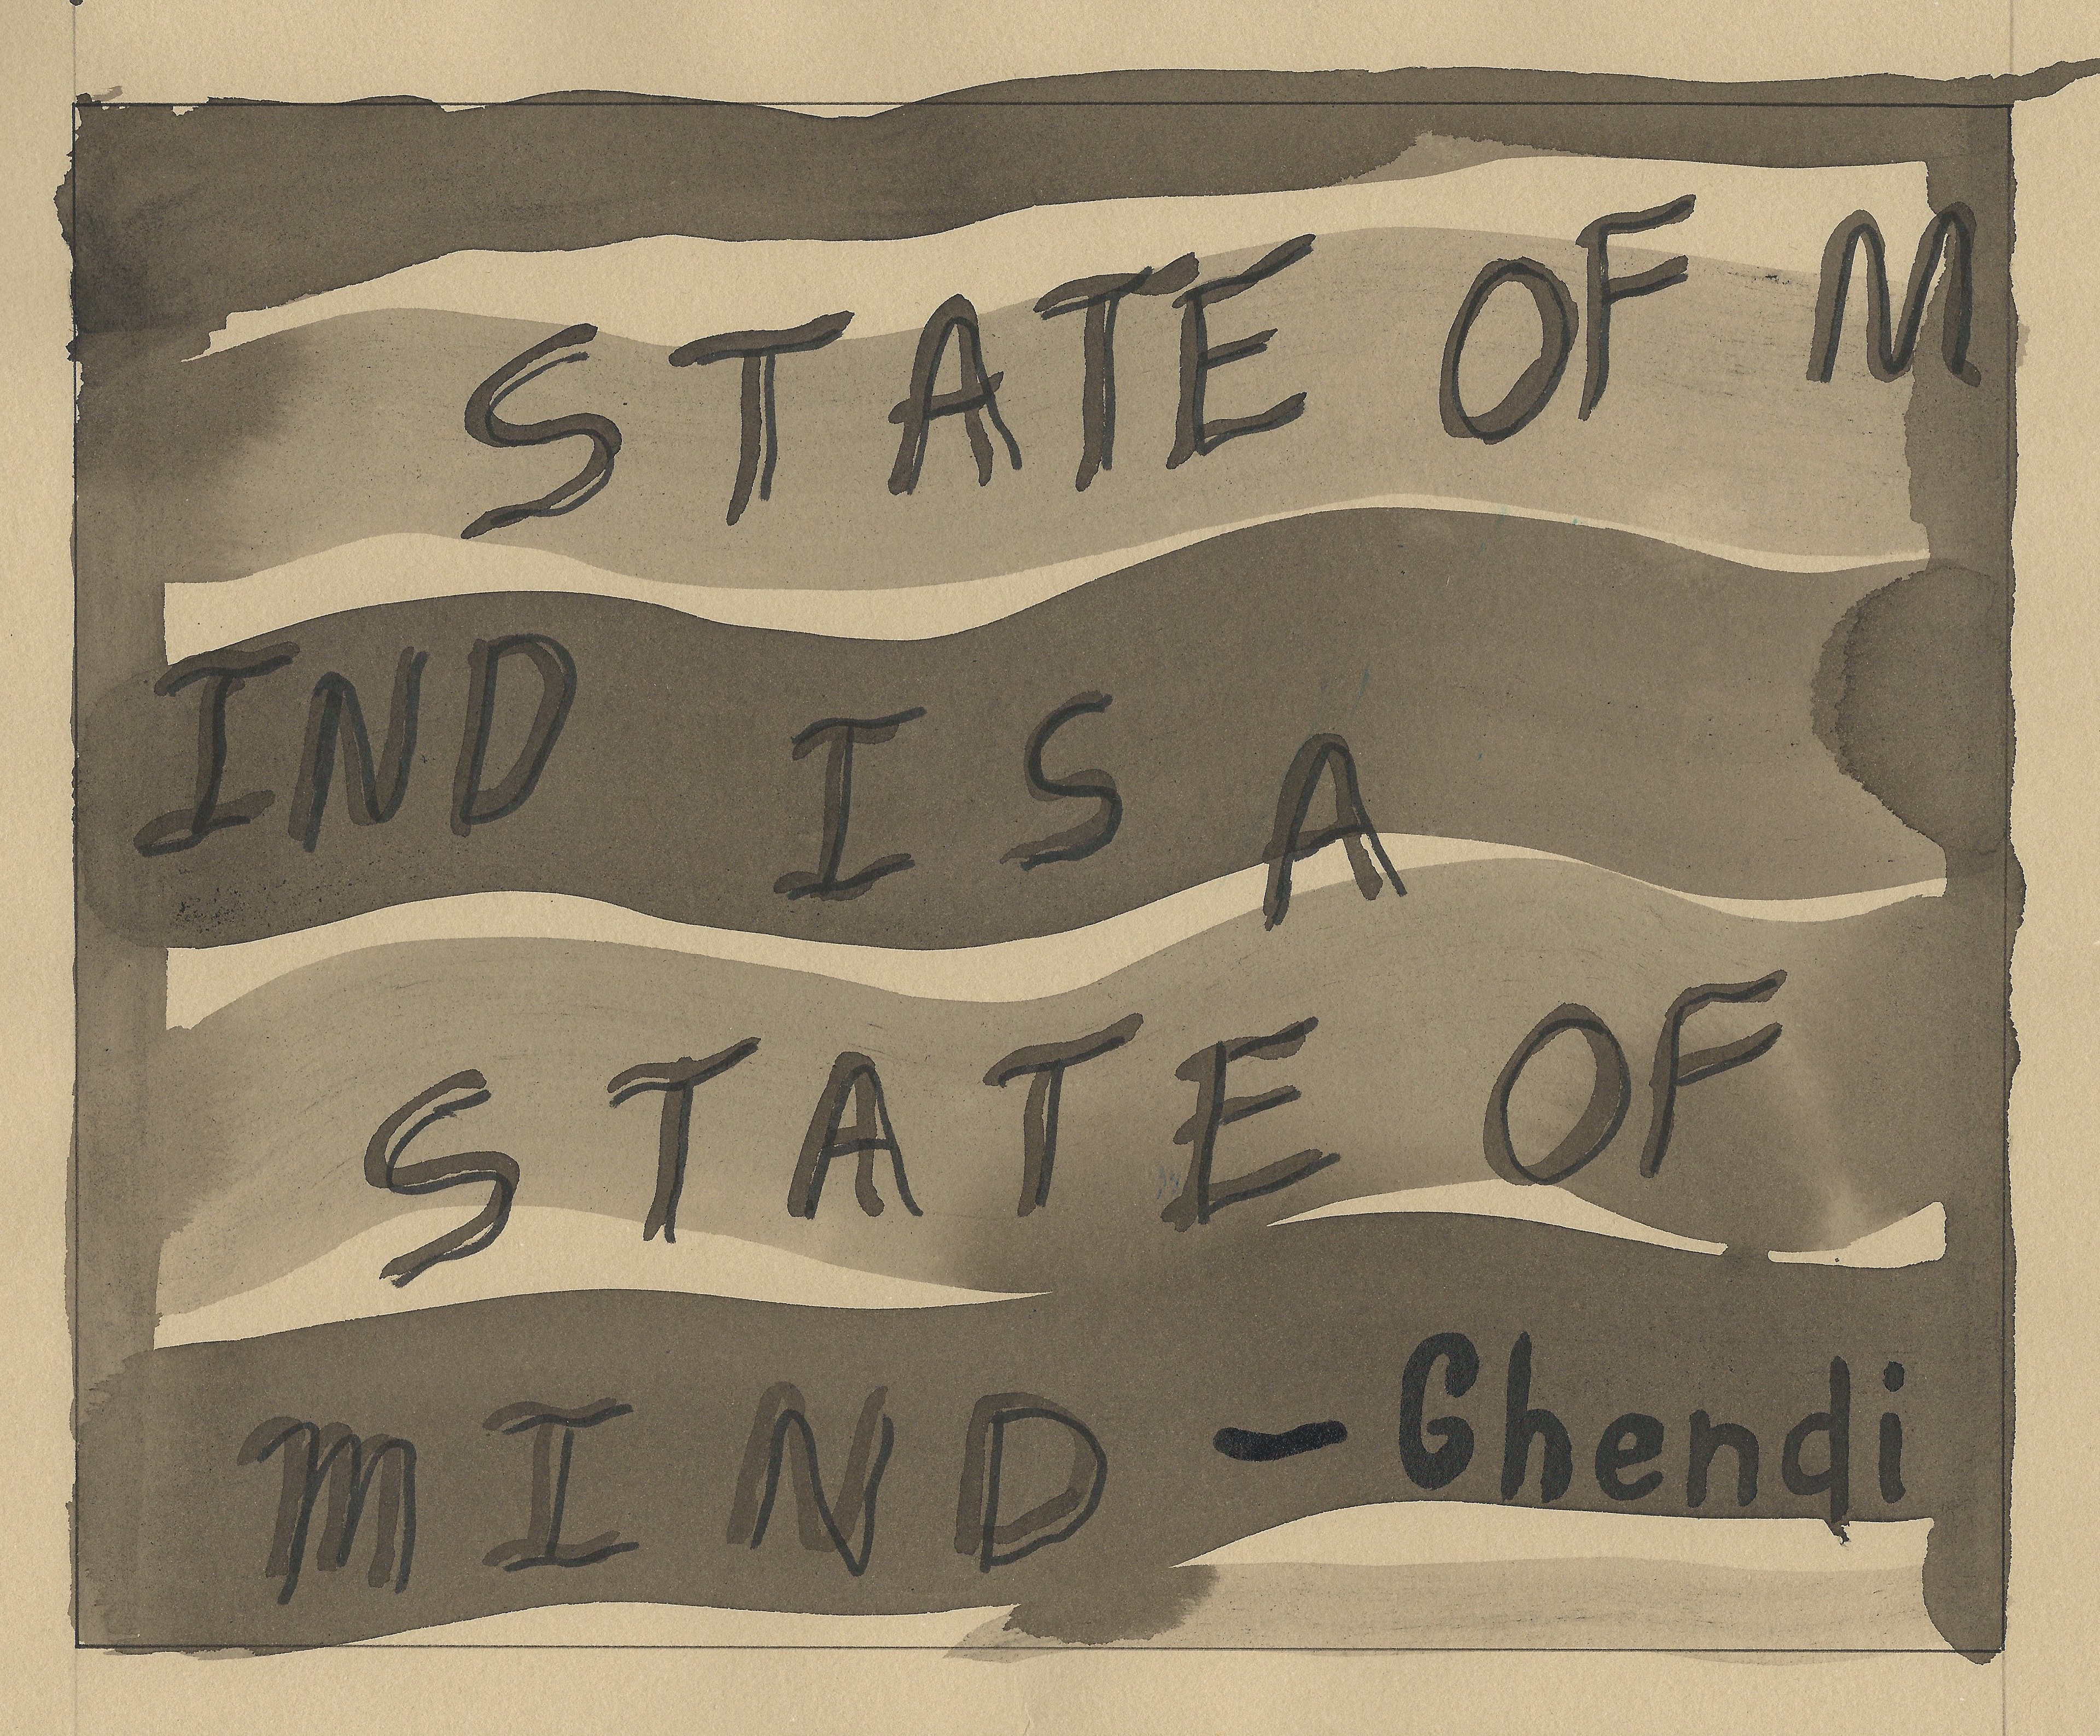 STATE OF M
IND IS A
STATE OF
MIND - Ghendi